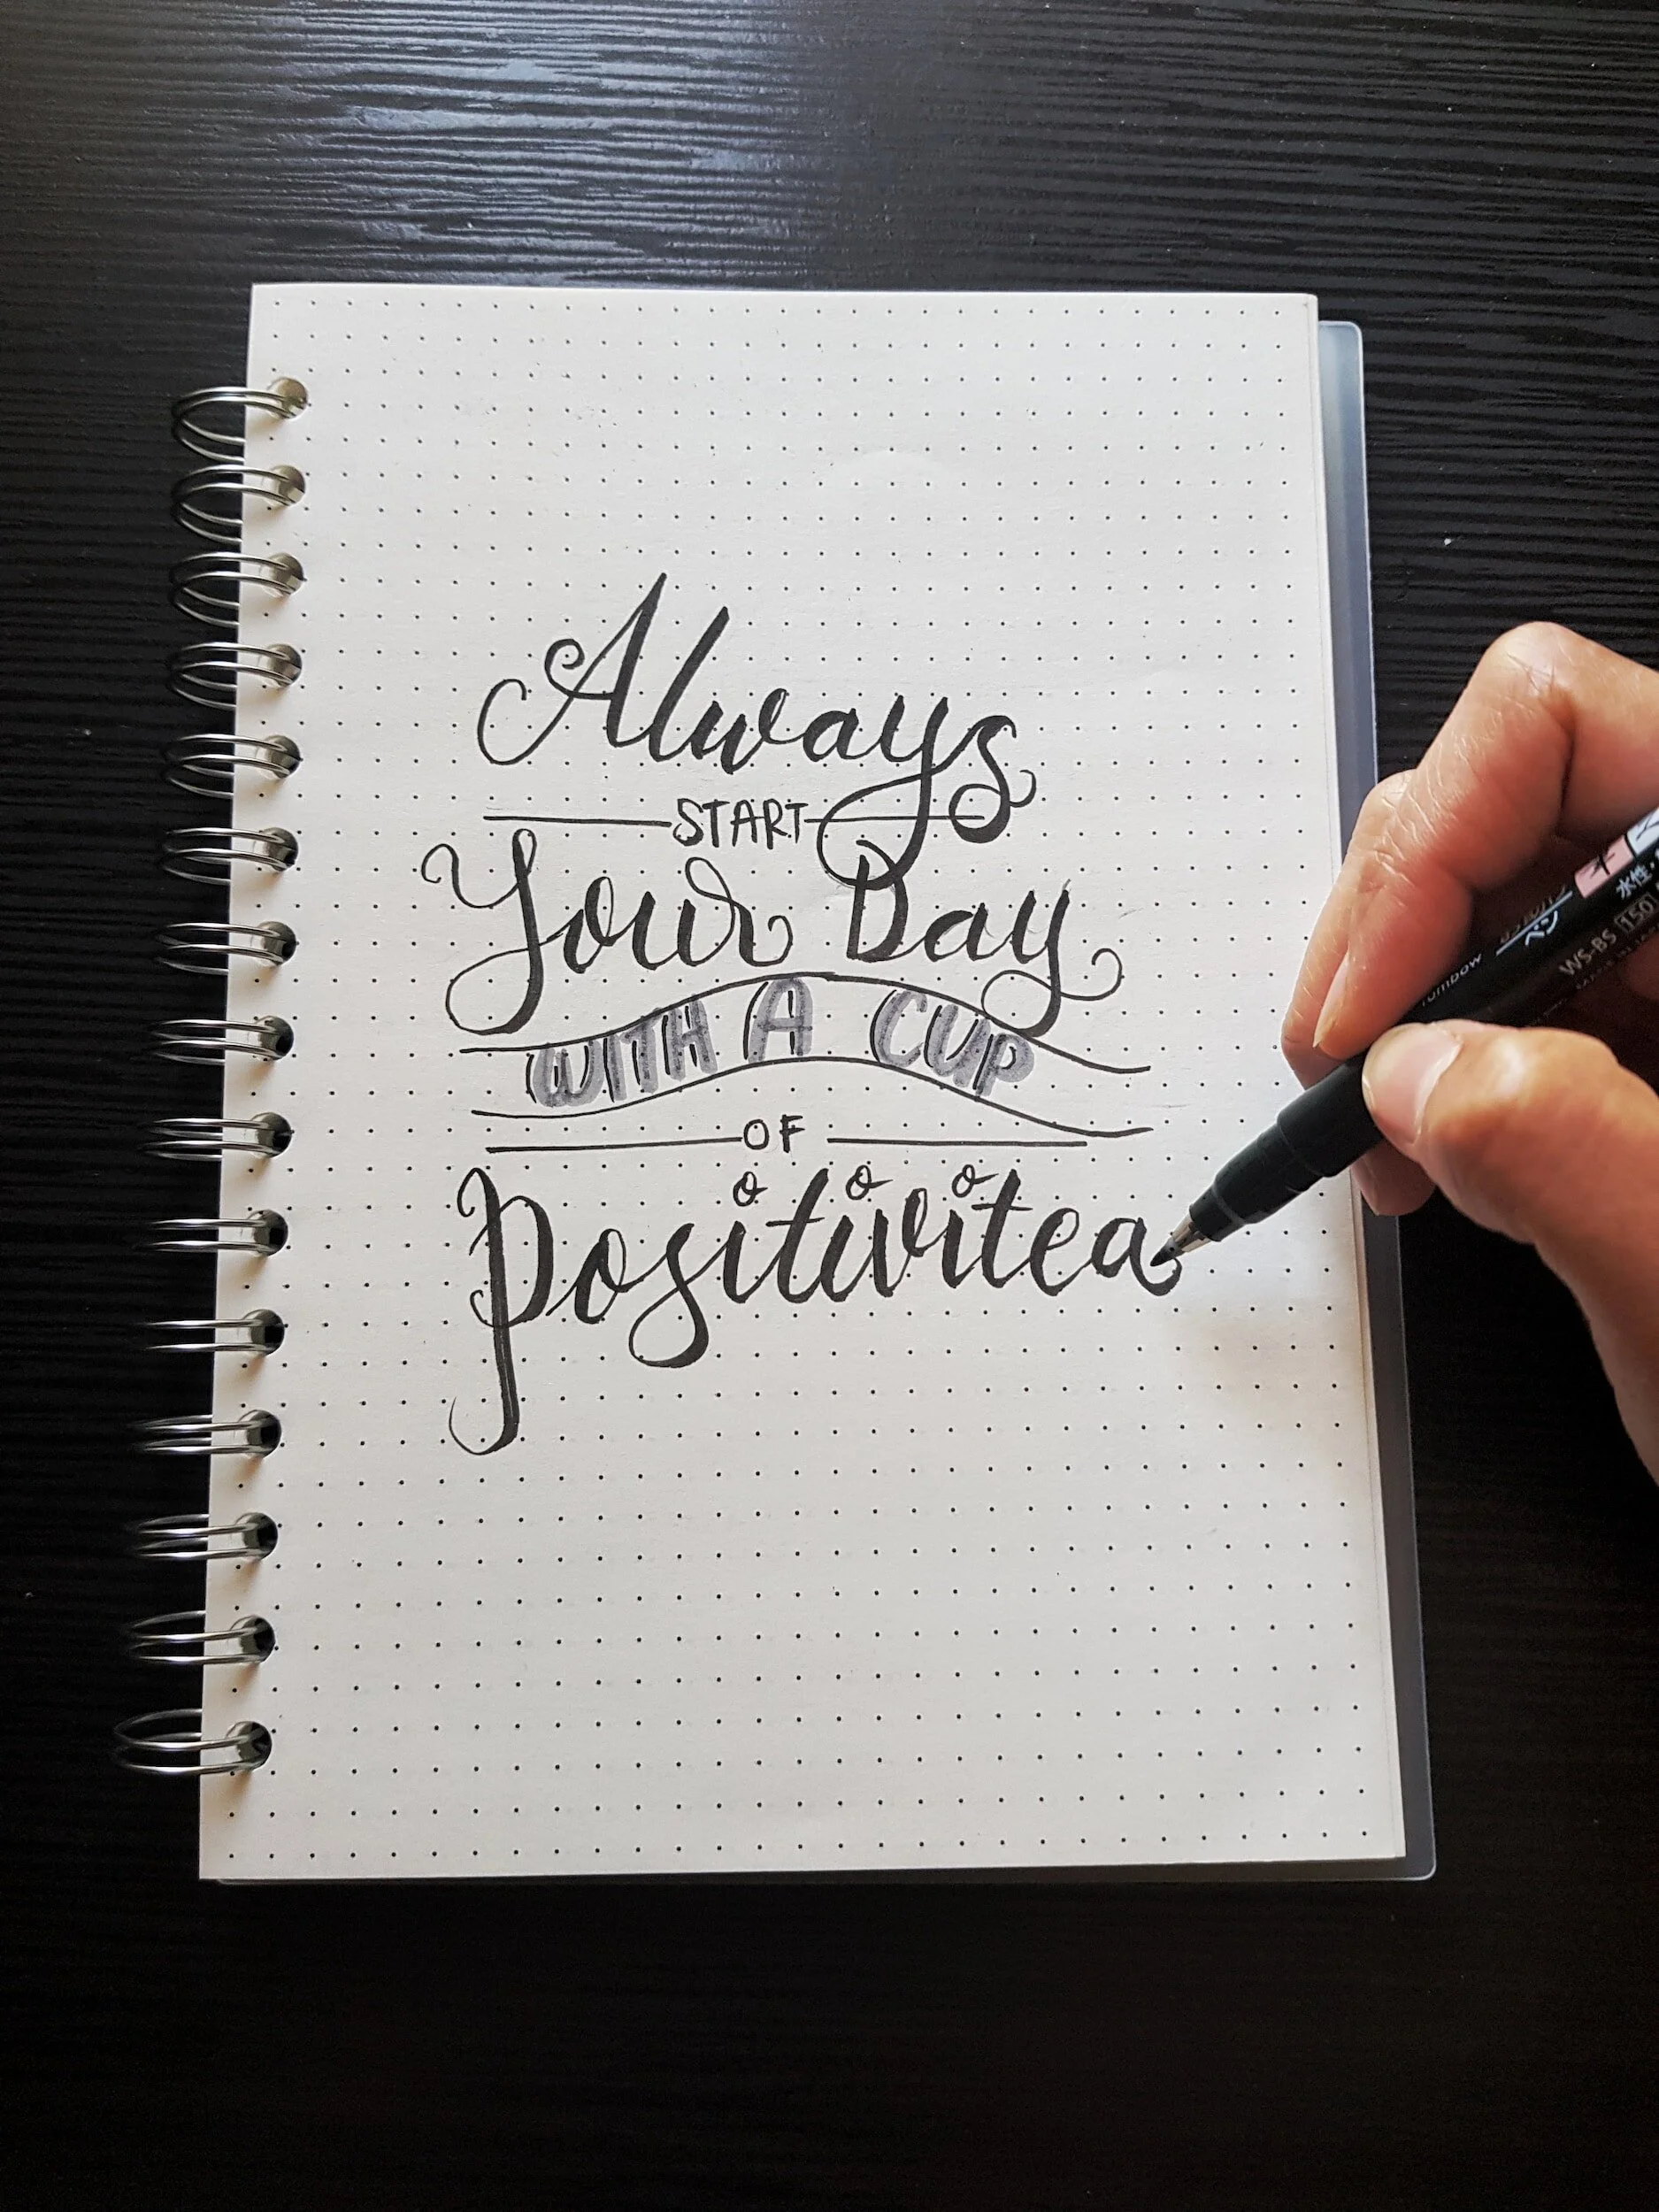 Always
START
Your Day
WITH A CUP
OF
Positivitea
Tombow
WS-BS 150
水性